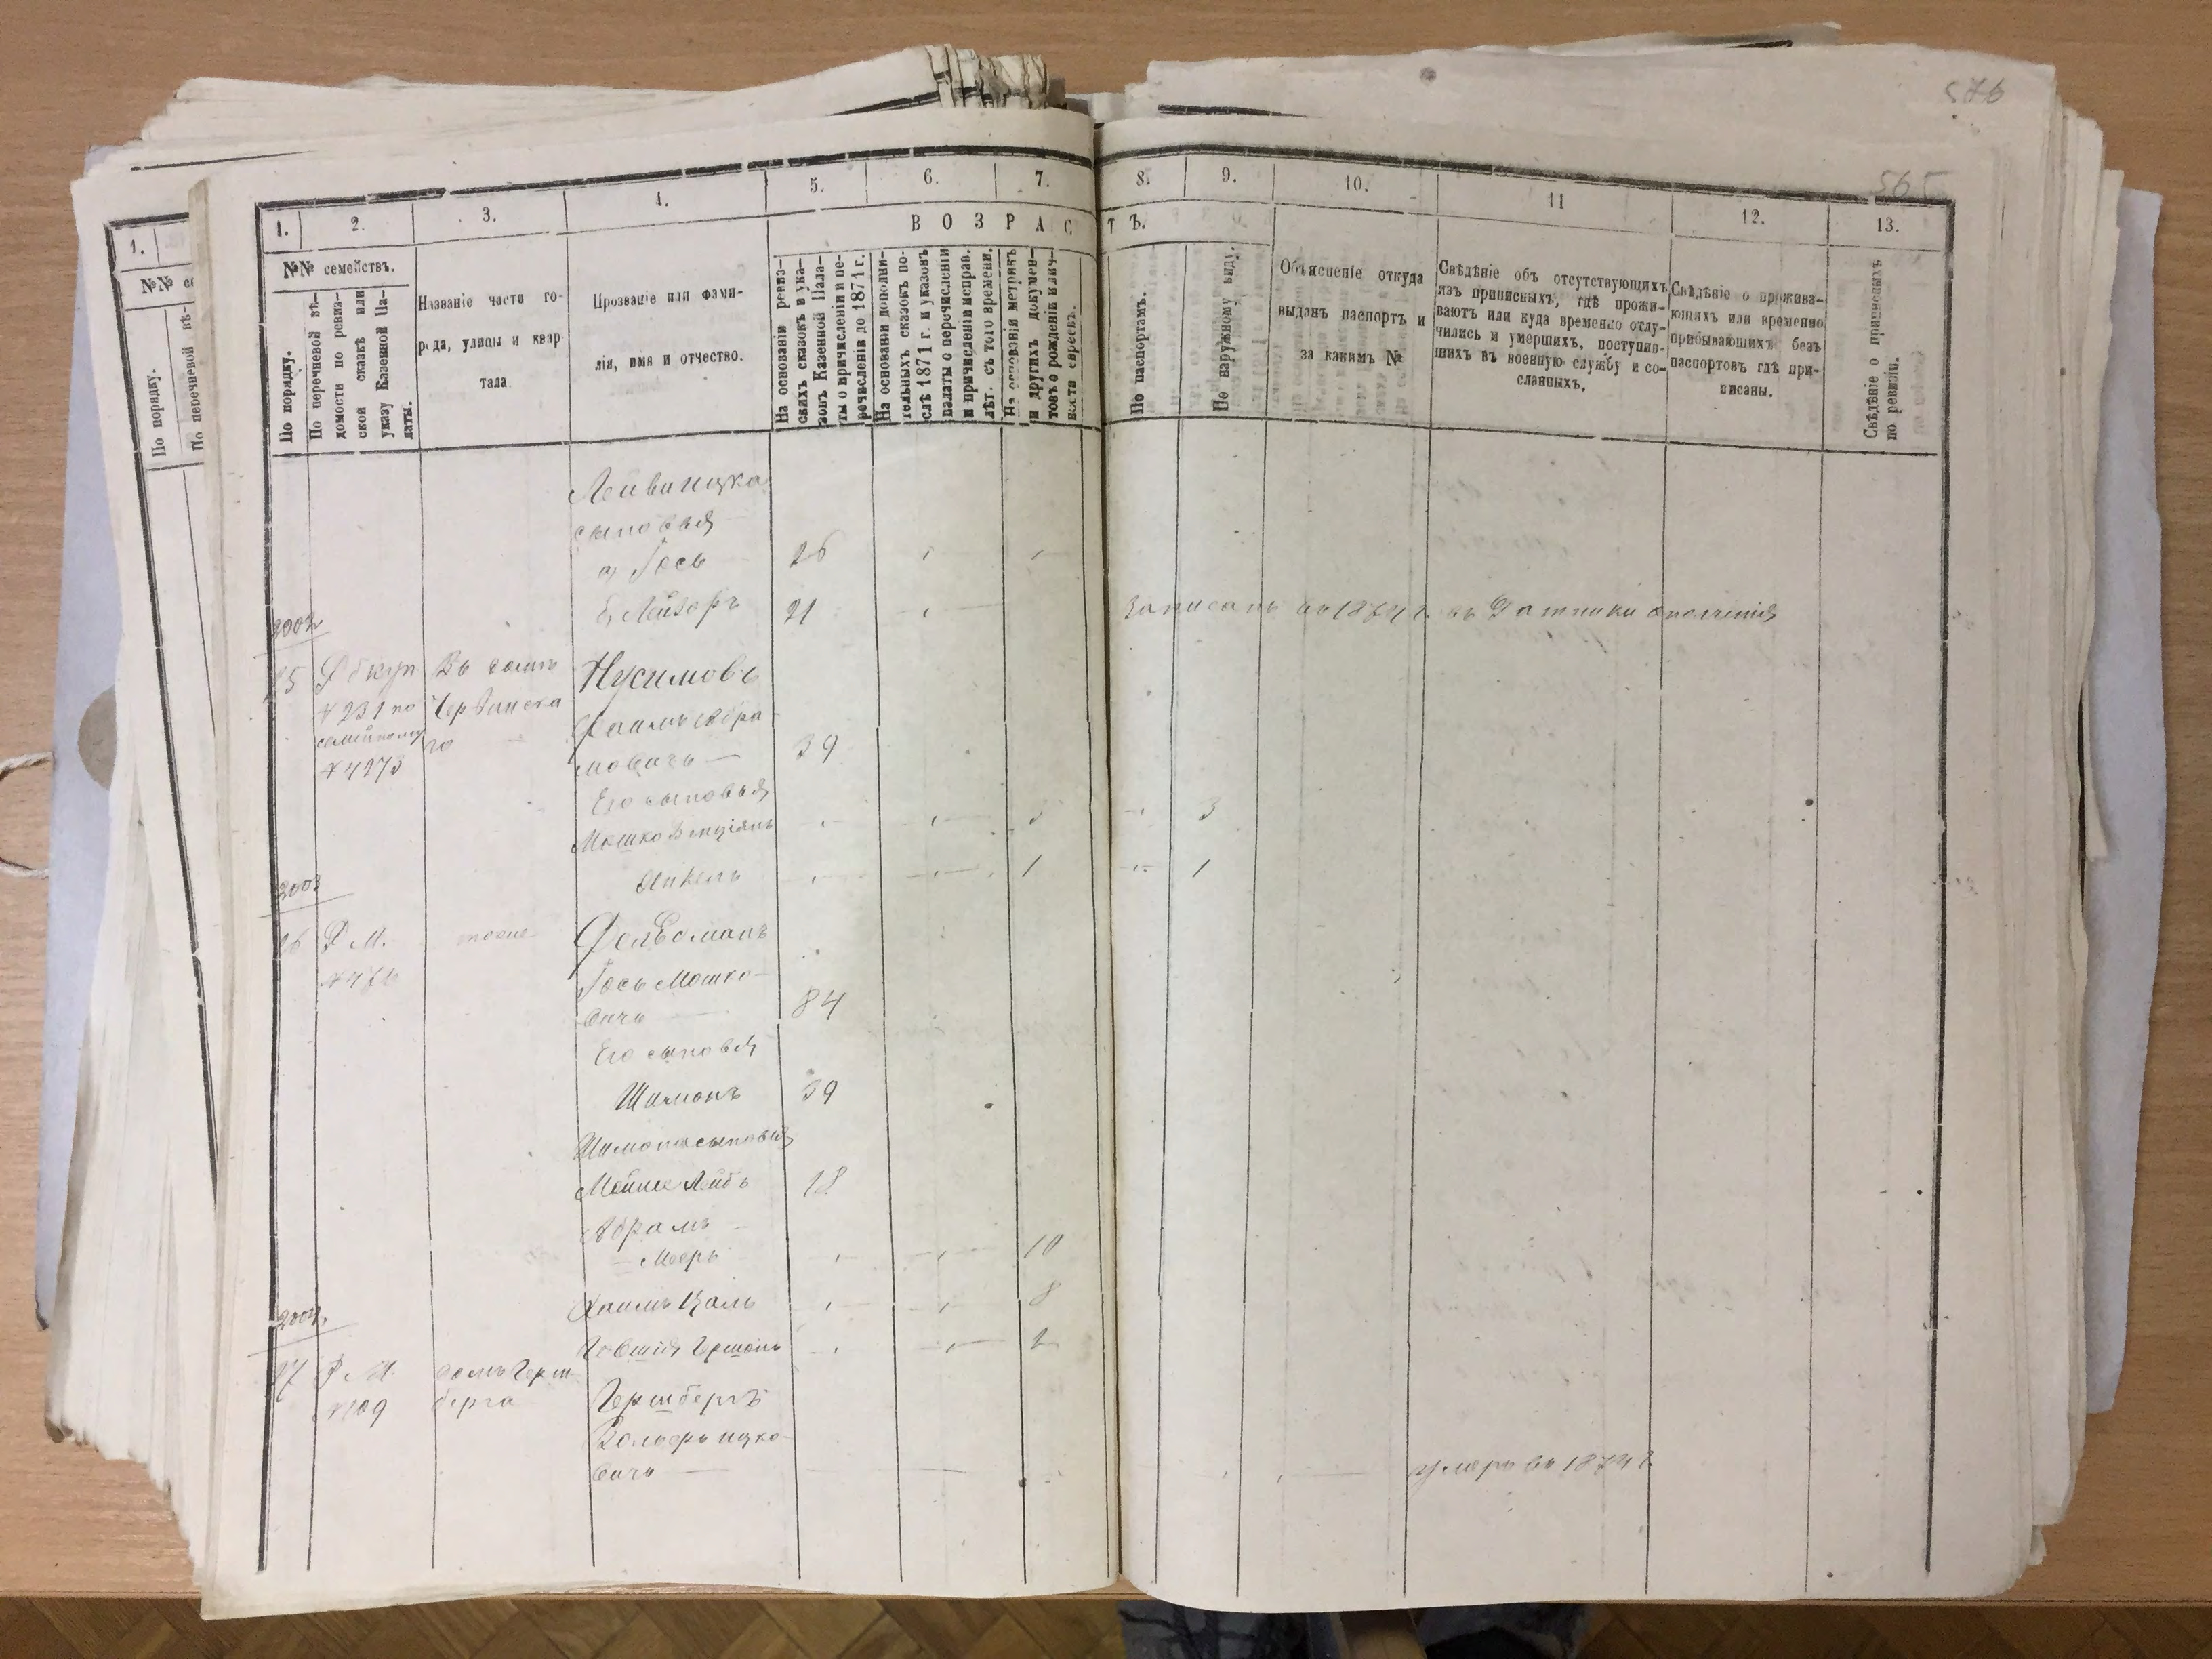 576
565
1.
№№ се
По порядку.
По перечневой вѣ-
1. 2. 3. 4. 5. 6. 7. 8. 9. 10. 11 12. 13.
№№ семействъ.
По порядку.
По перечневой вѣ-
домости по ревиз-
ской сказкѣ или
указу Казенной Па-
латы.
Названіе части го-
рода, улицы и квар
тала
Прозваніе или фами-
лія, имя и отчество.
ВОЗРАСТЪ.
На основаніи ревиз-
скихъ сказокъ и ука-
зовъ Казенной Пала-
ты о причисленіи и пе-
речисленіи до 1871 г.
На основаніи дополни-
тельныхъ сказокъ по-
слѣ 1871 г. и указовъ
палаты о перечисленіи
и причисленіи исправ.
лѣт. съ того времени.
На основаніи метрикъ
и другихъ докумен-
товъ о рожденіи и лич-
ности евреевъ.
По паспортамъ.
По наружному виду.
Объясненіе откуда
выданъ паспортъ и
за какимъ №
Свѣдѣніе объ отсутствующихъ
изъ приписныхъ, гдѣ прожи-
ваютъ или куда временно отлу-
чились и умершихъ, поступив-
шихъ въ военную службу и со-
сланныхъ.
Свѣдѣніе о прожива-
ющихъ или временно
прибывающихъ безъ
паспортовъ гдѣ при-
писаны.
Свѣдѣніе о приписныхъ
по ревизіи.
Лейви Ицка
сыновья
а, Іось 26
б, Лейзоръ 21 Записанъ въ 1874 г. въ Ратники ополченія
2002
25 Нусимовъ
№ 231 по Червинска
семейному го
№ 4273
Хаимъ Абра-
мовичъ 39
Его сыновья
Мошко Бенціянъ 3 3
Янкель 1 1
2003
26 Р М. тоже Фельдманъ
Іось Мошко-
вичъ 84
Его сыновья
Шимонъ 39
Шимона сыновья
Мойше Лейбъ 18
Абрамъ
Мееръ 10
Хаимъ Цаль 8
Іовшія Гершонъ 2
2004
27 Р М. домъ Герш
№ 109 берга Гершбергъ
Вольфъ Ицко-
вичъ умеръ въ 1874 г.